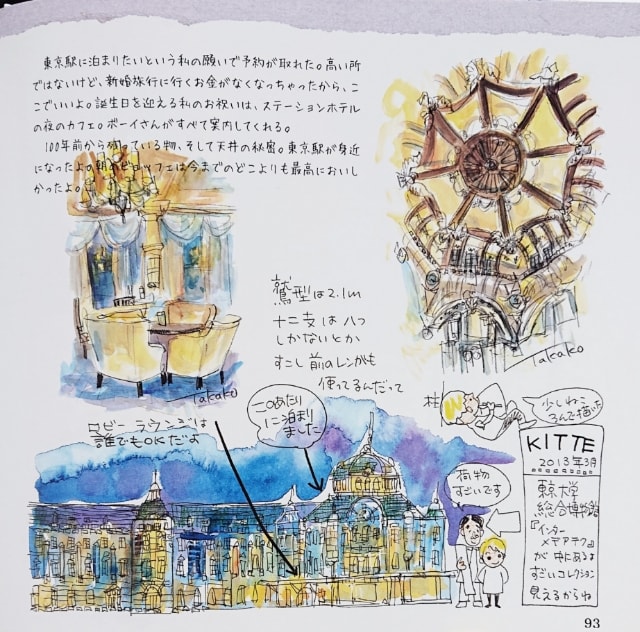 東京駅に泊まりたいという私の願いで予約が取れた。高い所
ではないけど、新婚旅行に行くお金がなくなっちゃったから、こ
こでいいよ。誕生日を迎える私のお祝いは、ステーションホテル
の夜のカフェ。ボーイさんがすべて案内してくれる。
100年前から残っている物、そして天井の秘密。東京駅が身近
になったよ。朝のビュッフェは今までのどこよりも最高においし
かったよ。
Takako
Takako
鷲型は2.1m
十二支は八つ
しかないとか
すこし前のレンガも
使ってるんだって
ロビーラウンジは
誰でもOKだよ
このあたり
に泊まり
ました
少しねこ
ろんで描いた
荷物
すごいです
KITTE
2013年3月
東京大学
総合博物館
『インター
メデアテク』
が中にあるよ
すごいコレクション
見えるからね
93